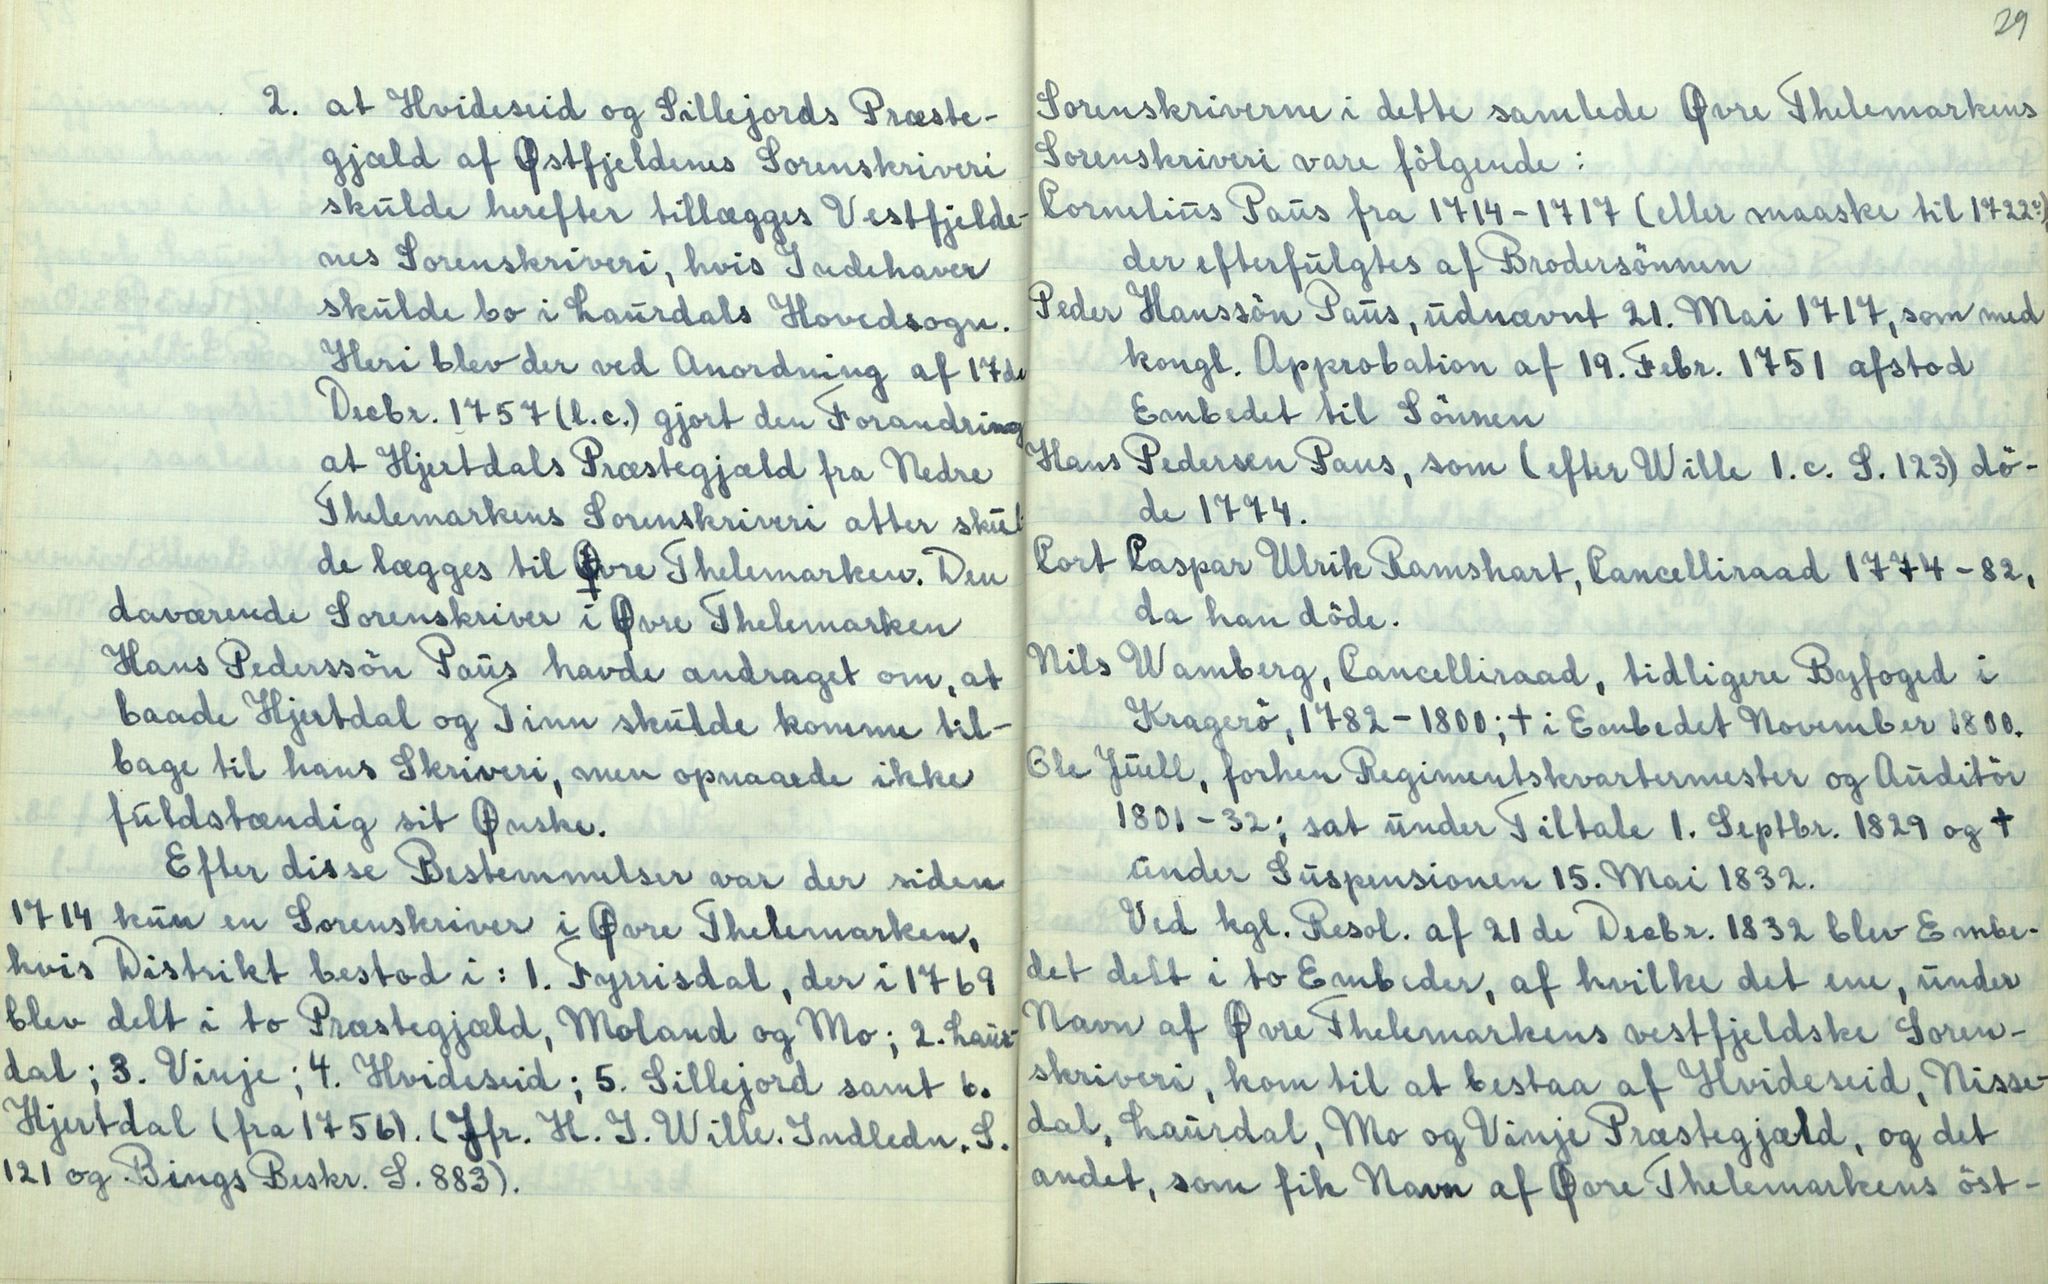 2. at Hvideseid og Sillejords Præste-
gjæld af Østfjeldenes Sorenskriveri
skulde herefter tillægges Vestfjelde-
nes Sorenskriveri, hvis Indehaver
skulde bo i Laurdals Hovedsogn.
Heri blev der ved Anordning af 17de
Decbr. 1757 (l.c.) gjort den Forandring
at Hjertdals Præstegjæld fra Nedre
Thelemarkens Sorenskriveri atter skul
de lægges til Øvre Thelemarken. Den
daværende Sorenskriver i Øvre Thelemarken
Hans Pederssön Paus havde andraget om, at
baade Hjertdal og Tinn skulde komme til-
bage til hans Skriveri, men opnaaede ikke
fuldstændig sit Ønske.
Efter disse Bestemmelser var der siden
1714 kun en Sorenskriver i Øvre Thelemarken,
hvis Distrikt bestod i: 1. Fyrrisdal, der i 1769
blev delt i to Præstegjæld, Moland og Mo; 2. Laur-
dal; 3. Vinje; 4. Hvideseid; 5. Sillejord samt 6.
Hjertdal (fra 1756). (Jfr. H. J. Wille. Indledn. S.
121 og Bings Beskr. S. 883).
29
Sorenskriverne i dette samlede Øvre Thelemarkens
Sorenskriveri vare fölgende:
Cornelius Paus fra 1714-1717 (eller maaske til 1722?)
der efterfulgtes af Brodersönnen
Peder Hanssön Paus, udnævnt 21. Mai 1717, som med
kongl. Approbation af 19. Febr. 1751 afstod
Embedet til Sönnen
Hans Pedersen Paus, som (efter Wille l.c. S. 123) dö-
de 1774.
Cort Caspar Ulrik Ramshart, Cancelliraad 1774-82,
da han döde.
Nils Wamberg, Cancelliraad, tidligere Byfoged i
Kragerö, 1782-1800; † i Embedet November 1800.
Ole Juell, forhen Regimentskvartermester og Auditör
1801-32; sat under Tiltale 1. Septbr. 1829 og †
under Suspensionen 15. Mai 1832.
Ved kgl. Resol. af 21de Decbr. 1832 blev Embe-
det delt i to Embeder, af hvilke det ene, under
Navn af Øvre Thelemarkens vestfjeldske Soren-
skriveri, kom til at bestaa af Hvideseid, Nisse-
dal, Laurdal, Mo og Vinje Præstegjæld, og det
andet, som fik Navn af Øvre Thelemarkens öst-